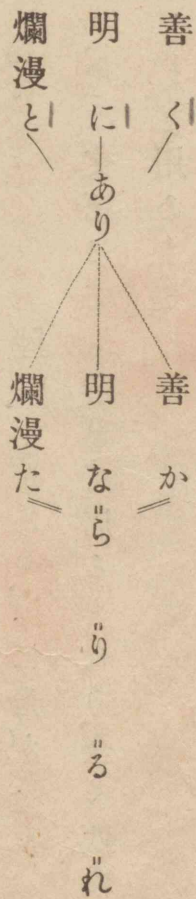 善く
明に
爛漫と
あり
善か
明な
爛漫た
ら
り
る
れ